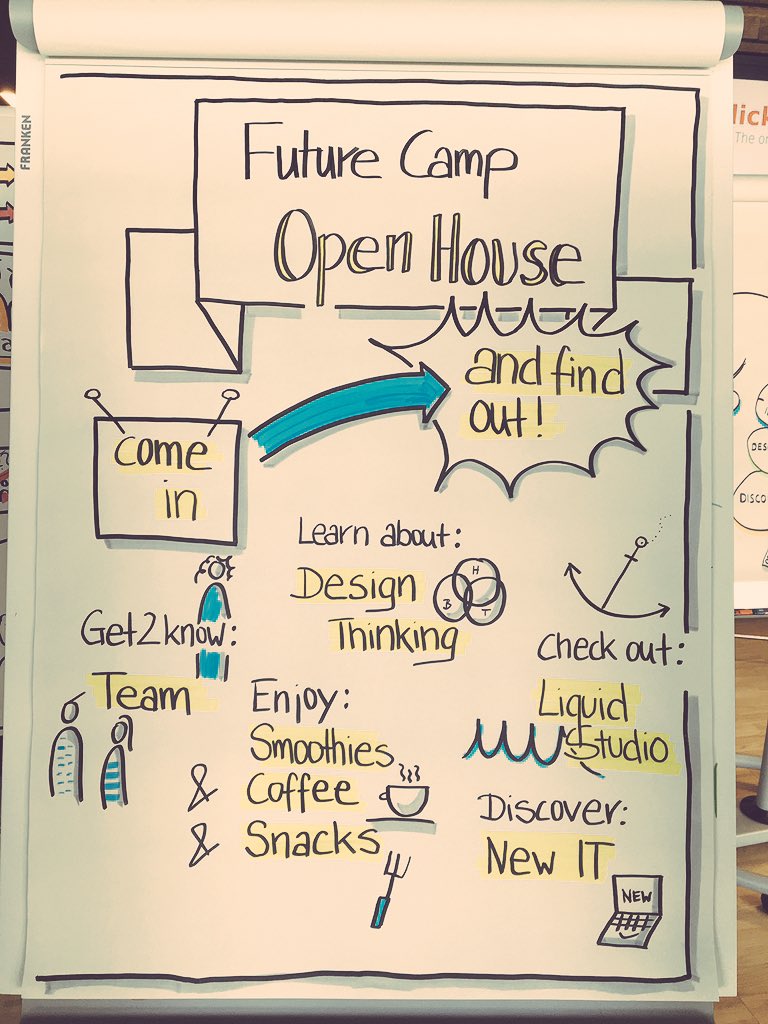 FRANKEN
Future Camp
Open House
and find
out!
come
in
Learn about:
Design
Thinking
H
B T
Get2know:
Team
Check out:
Liquid
Studio
Enjoy:
Smoothies
& Coffee
& Snacks
Discover:
New IT
NEW
lick
The
DISCO